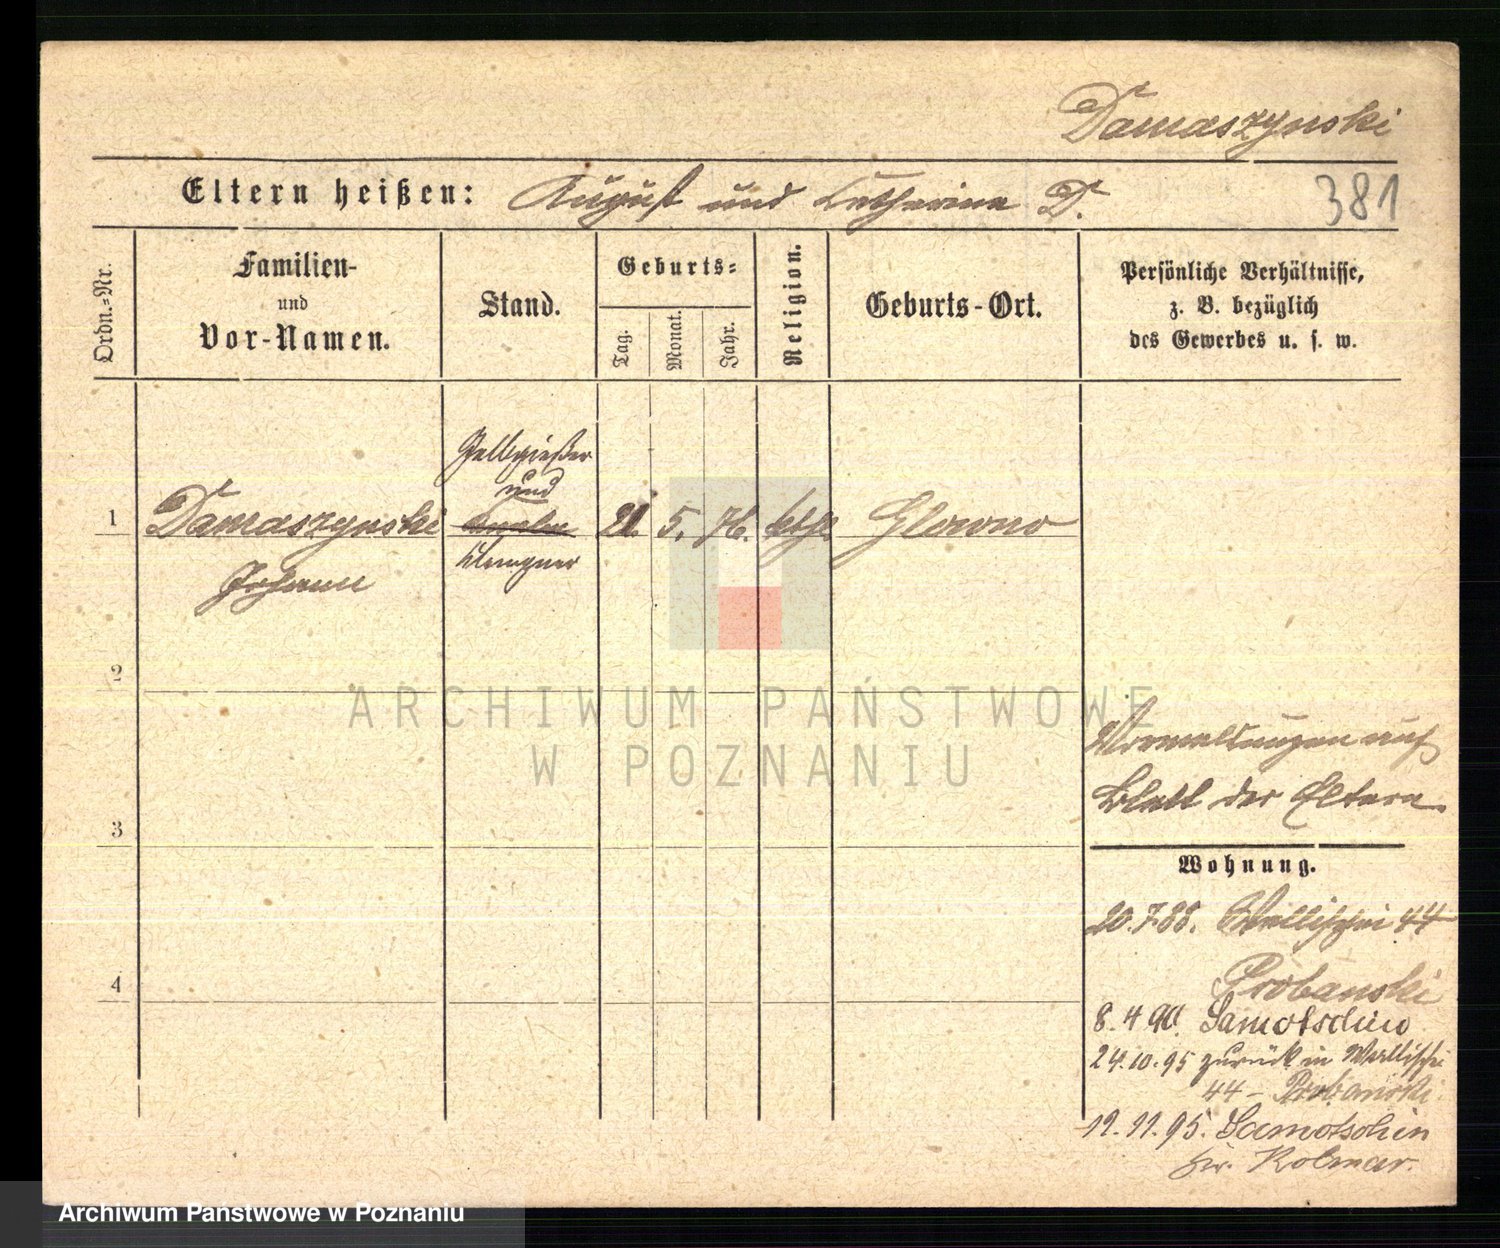 Damaszynski
Eltern heißen: August und Catharina D.
381
Ordn.-Nr.
Familien-
und
Vor-Namen.
Stand.
Geburts-
Tag.
Monat.
Jahr.
Religion.
Geburts-Ort.
Persönliche Verhältnisse,
z. B. bezüglich
des Gewerbes u. s. w.
Gelbgießer
und
Klempner
1 Damaszynski 21. 5. 76. kthl. Glowno
Johann
2
3
4
ARCHIWUM PAŃSTWOWE
W POZNANIU
Vormeldungen auf
Blatt der Eltern
Wohnung.
20.7.88. Wallischei 44
Probanski
8.4.90. Samotschin
24.10.95 zurück in Wallischei
44 - Probanski.
12.11.95. Samotschin
Kr. Kolmar.
Archiwum Państwowe w Poznaniu